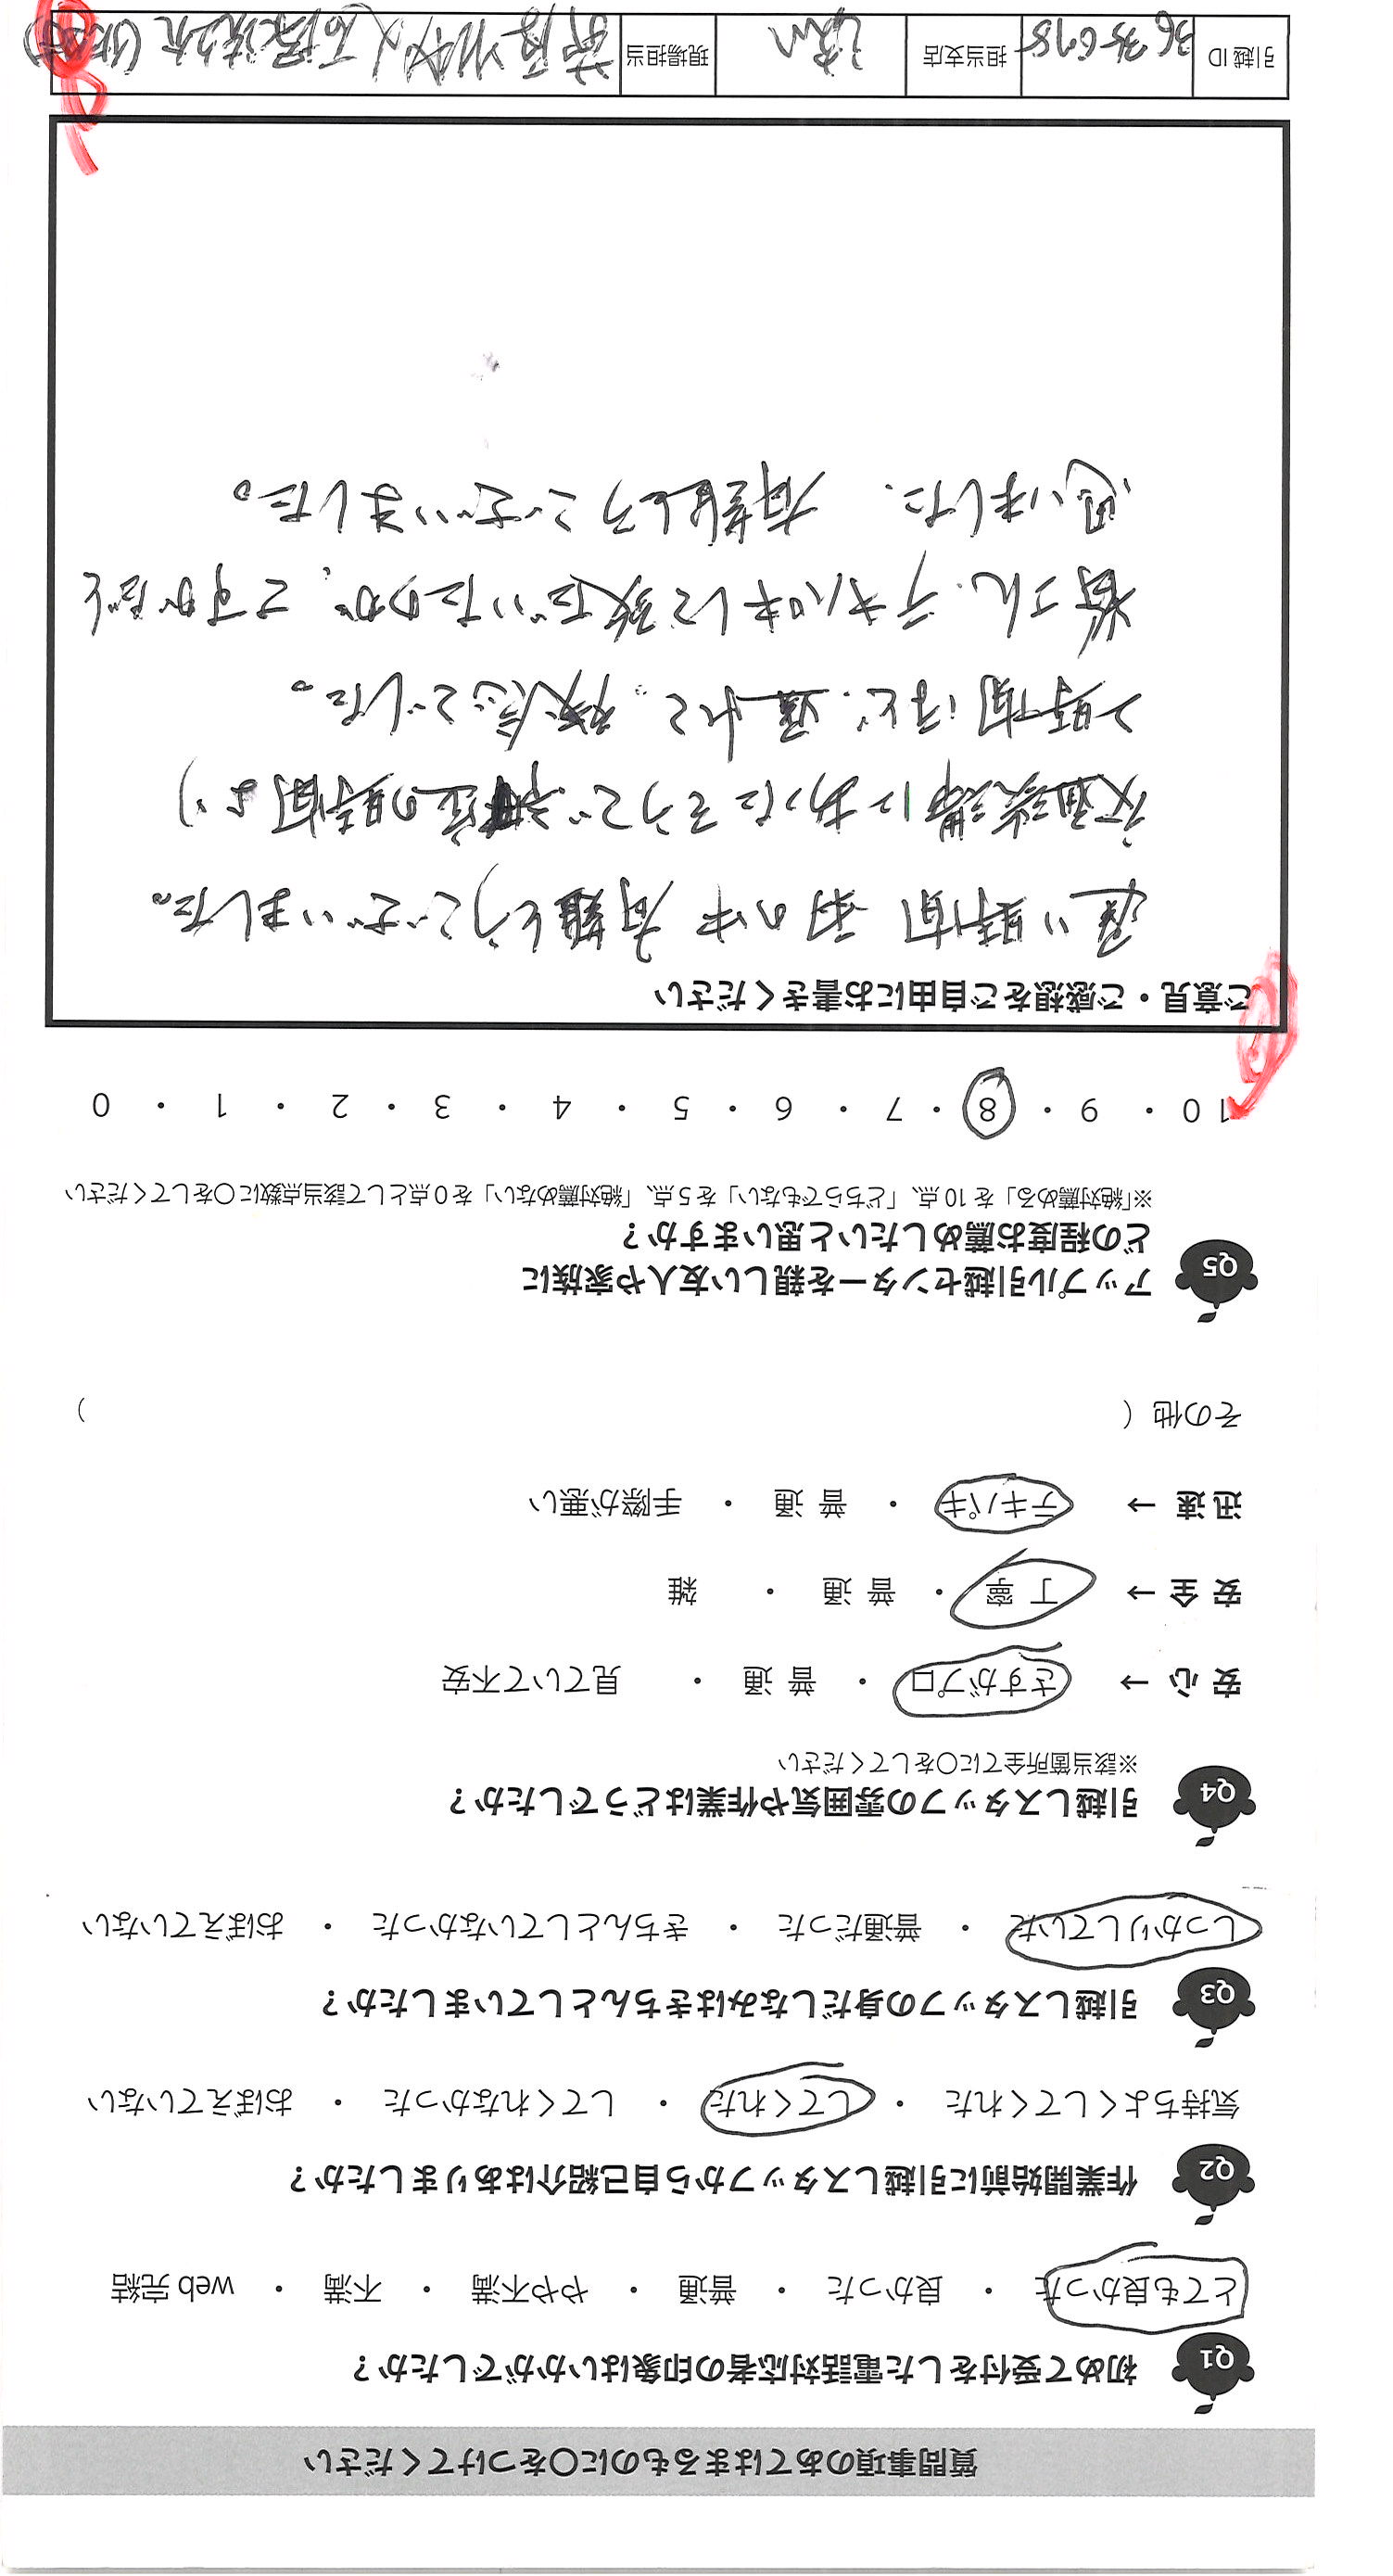 質問事項のあてはまるものに○をつけてください
Q1 初めて受付をした電話対応者の印象はいかがでしたか？
とても良かった ・ 良かった ・ 普通 ・ やや不満 ・ 不満 ・ web 完結
Q2 作業開始前に引越しスタッフから自己紹介はありましたか？
気持ちよくしてくれた ・ してくれた ・ してくれなかった ・ おぼえていない
Q3 引越しスタッフの身だしなみはきちんとしていましたか？
しっかりしていた ・ 普通だった ・ きちんとしていなかった ・ おぼえていない
Q4 引越しスタッフの雰囲気や作業はどうでしたか？
※該当箇所全てに○をしてください
安 心 → さすがプロ ・ 普 通 ・ 見ていて不安
安 全 → 丁 寧 ・ 普 通 ・ 雑
迅 速 → テキパキ ・ 普 通 ・ 手際が悪い
その他（ ）
Q5 アップル引越センターを親しい友人や家族に
どの程度お薦めしたいと思いますか？
※「絶対薦める」を 10 点、「どちらでもない」を 5 点、「絶対薦めない」を 0 点として該当点数に○をしてください
10 ・ 9 ・ 8 ・ 7 ・ 6 ・ 5 ・ 4 ・ 3 ・ 2 ・ 1 ・ 0
ご意見・ご感想をご自由にお書きください
遅い時間 雨の中 有難とうございました。
交通渋滞にあったそうで 予定の時間より
2時間ほど 遅れて でした。
皆さん、テキパキして頂いたのが、さすがだと
思いました、有難とうございました。
引越 ID 3635695 担当支店 現場担当